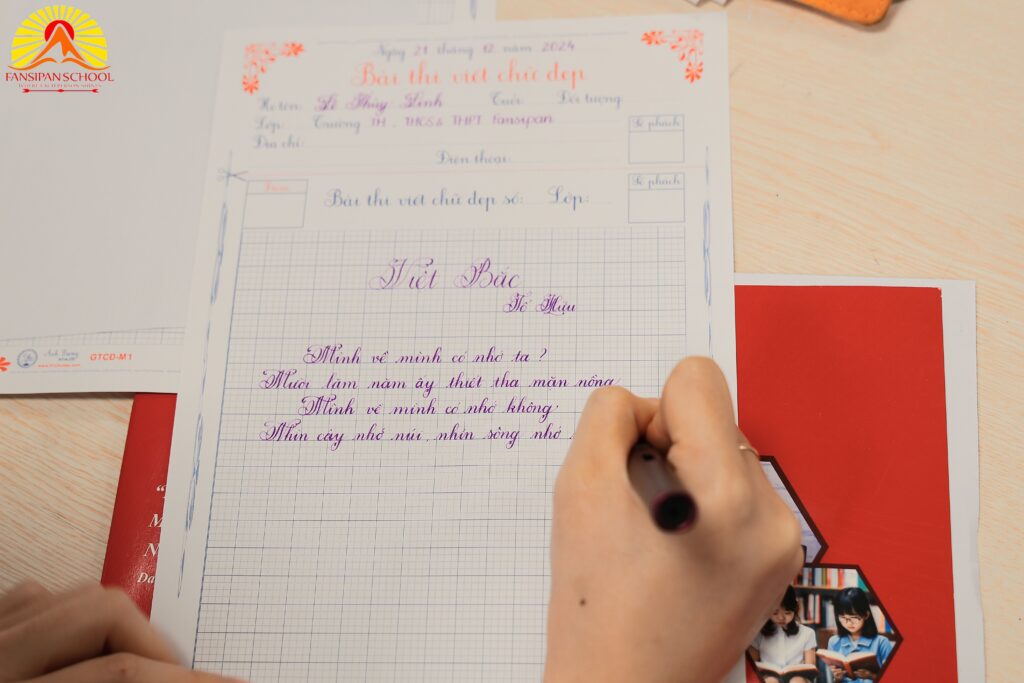 FANSIPAN SCHOOL
Ngày 21 tháng 12 năm 2024
Bài thi viết chữ đẹp
Họ tên: Lê Thùy Linh Tuổi: Đối tượng:
Lớp: Trường TH, THCS & THPT Fansipan
Địa chỉ:
Điện thoại:
Số phách
Điểm
Bài thi viết chữ đẹp số: Lớp:
Số phách
Việt Bắc
Tố Hữu
Mình về mình có nhớ ta?
Mười lăm năm ấy thiết tha mặn nồng
Mình về mình có nhớ không
Nhìn cây nhớ núi, nhìn sông nhớ
GTCĐ-M1